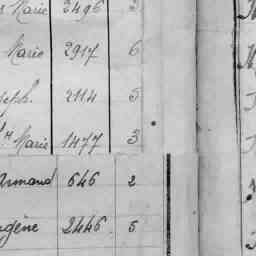 Marie 2496 5
Marie 2917 6
seph. 2114 5
Marie 1477 3
Armand 646 2
gène 2446 5